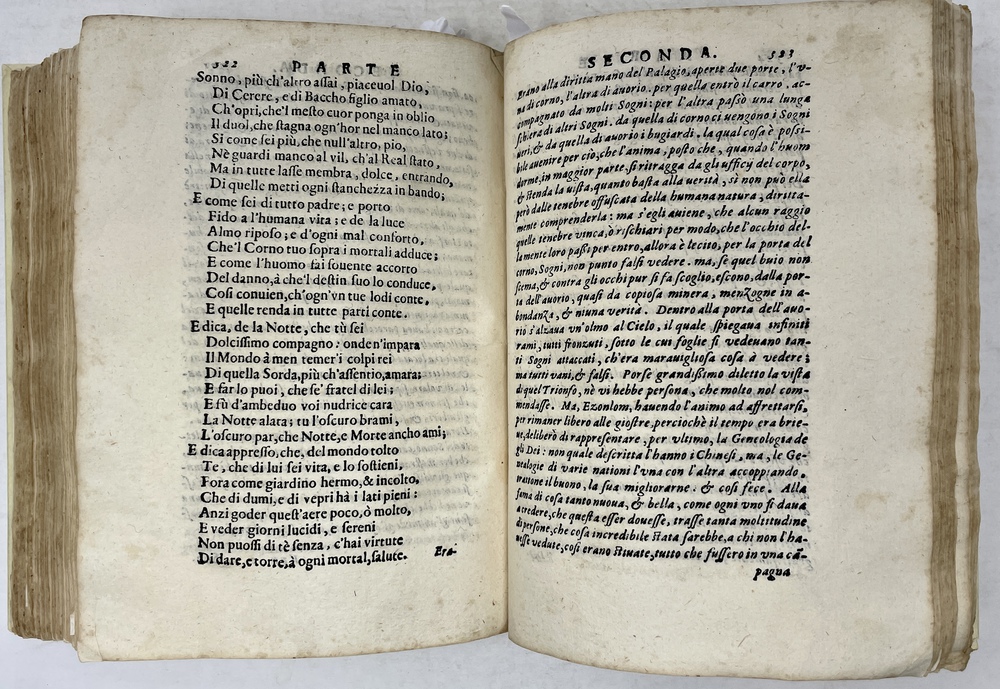 522 PARTE
Sonno, più ch'altro assai, piaceuol Dio,
Di Cerere, e di Baccho figlio amato,
Ch'opri, che'l mesto cuor ponga in oblio
Il duol, che stagna ogn'hor nel manco lato;
Si come sei più, che null'altro, pio,
Nè guardi manco al vil, ch'al Real stato,
Ma in tutte lasse membra, dolce, entrando,
Di quelle metti ogni stanchezza in bando;
E come sei di tutto padre; e porto
Fido a l'humana vita; e de la luce
Almo riposo; e d'ogni mal conforto,
Che'l Corno tuo sopra i mortali adduce;
E come l'huomo fai souente accorto
Del danno, à che'l destin suo lo conduce,
Cosi conuien, ch'ogn'vn tue lodi conte,
E quelle renda in tutte parti conte.
E dica, de la Notte, che tù sei
Dolcissimo compagno: onde n'impara
Il Mondo à men temer'i colpi rei
Di quella Sorda, più ch'assentio, amara;
E far lo puoi, che se' fratel di lei;
E fù d'ambeduo voi nudrice cara
La Notte alata; tu l'oscuro brami,
L'oscuro par, che Notte, e Morte ancho ami;
E dica appresso, che, del mondo tolto
Te, che di lui sei vita, e lo sostieni,
Fora come giardino hermo, & incolto,
Che di dumi, e di vepri hà i lati pieni:
Anzi goder quest'aere poco, ò molto,
E veder giorni lucidi, e sereni
Non puossi di tè senza, c'hai virtute
Di dare, e torre, à ogni mortal, salute.
Era-
SECONDA. 523
Erano alla diritta mano del Palagio, aperte due porte, l'v-
na di corno, l'altra di auorio. per quella entrò il carro, ac-
compagnato da molti Sogni: per l'altra passò una lunga
schiera di altri Sogni. da quella di corno ci uengono i Sogni
ueri, & da quella di auorio i bugiardi. la qual cosa è possi-
bile auenire per ciò, che l'anima, posto che, quando l'huom
dorme, in maggior parte, si ritragga da gli ufficij del corpo,
& stenda la uista, quanto basta alla uerità, sì non può ella
però dalle tenebre offuscata della humana natura, diritta-
mente comprenderla: ma s'egli auiene, che alcun raggio
quelle tenebre vinca, ò rischiari per modo, che l'occhio del-
la mente loro passi per entro, allora è lecito, per la porta del
corno, Sogni, non punto falsi vedere. ma, se quel buio non
scema, & contra gli occhi pur si fa scoglio, escono, dalla por-
ta dell'auorio, quasi da copiosa minera, menzogne in a-
bondanza, & niuna verità. Dentro alla porta dell'auo-
rio s'alzaua vn'olmo al Cielo, il quale spiegaua infiniti
rami, tutti fronzuti, sotto le cui foglie si vedeuano tan-
ti Sogni attaccati, ch'era marauigliosa cosa à vedere;
ma tutti vani, & falsi. Porse grandissimo diletto la vista
di quel Trionfo, nè vi hebbe persona, che molto nol com-
mendasse. Ma, Ezonlom, hauendo l'animo ad affrettarsi,
per rimaner libero alle giostre, perciochè il tempo era brie-
ue, deliberò di rappresentare, per vltimo, la Geneologia de
gli Dei: non quale descritta l'hanno i Chinesi, ma, le Ge-
nealogie di varie nationi l'vna con l'altra accoppiando,
trattone il buono, la sua migliorarne. & così fece. Alla
fama di cosa tanto nuoua, & bella, come ogni vno si daua
a credere, che questa esser douesse, trasse tanta moltitudine
di persone, che cosa incredibile stata sarebbe, a chi non l'ha-
uesse vedute, così erano stiuate, tutto che fussero in vna cã-
pagna